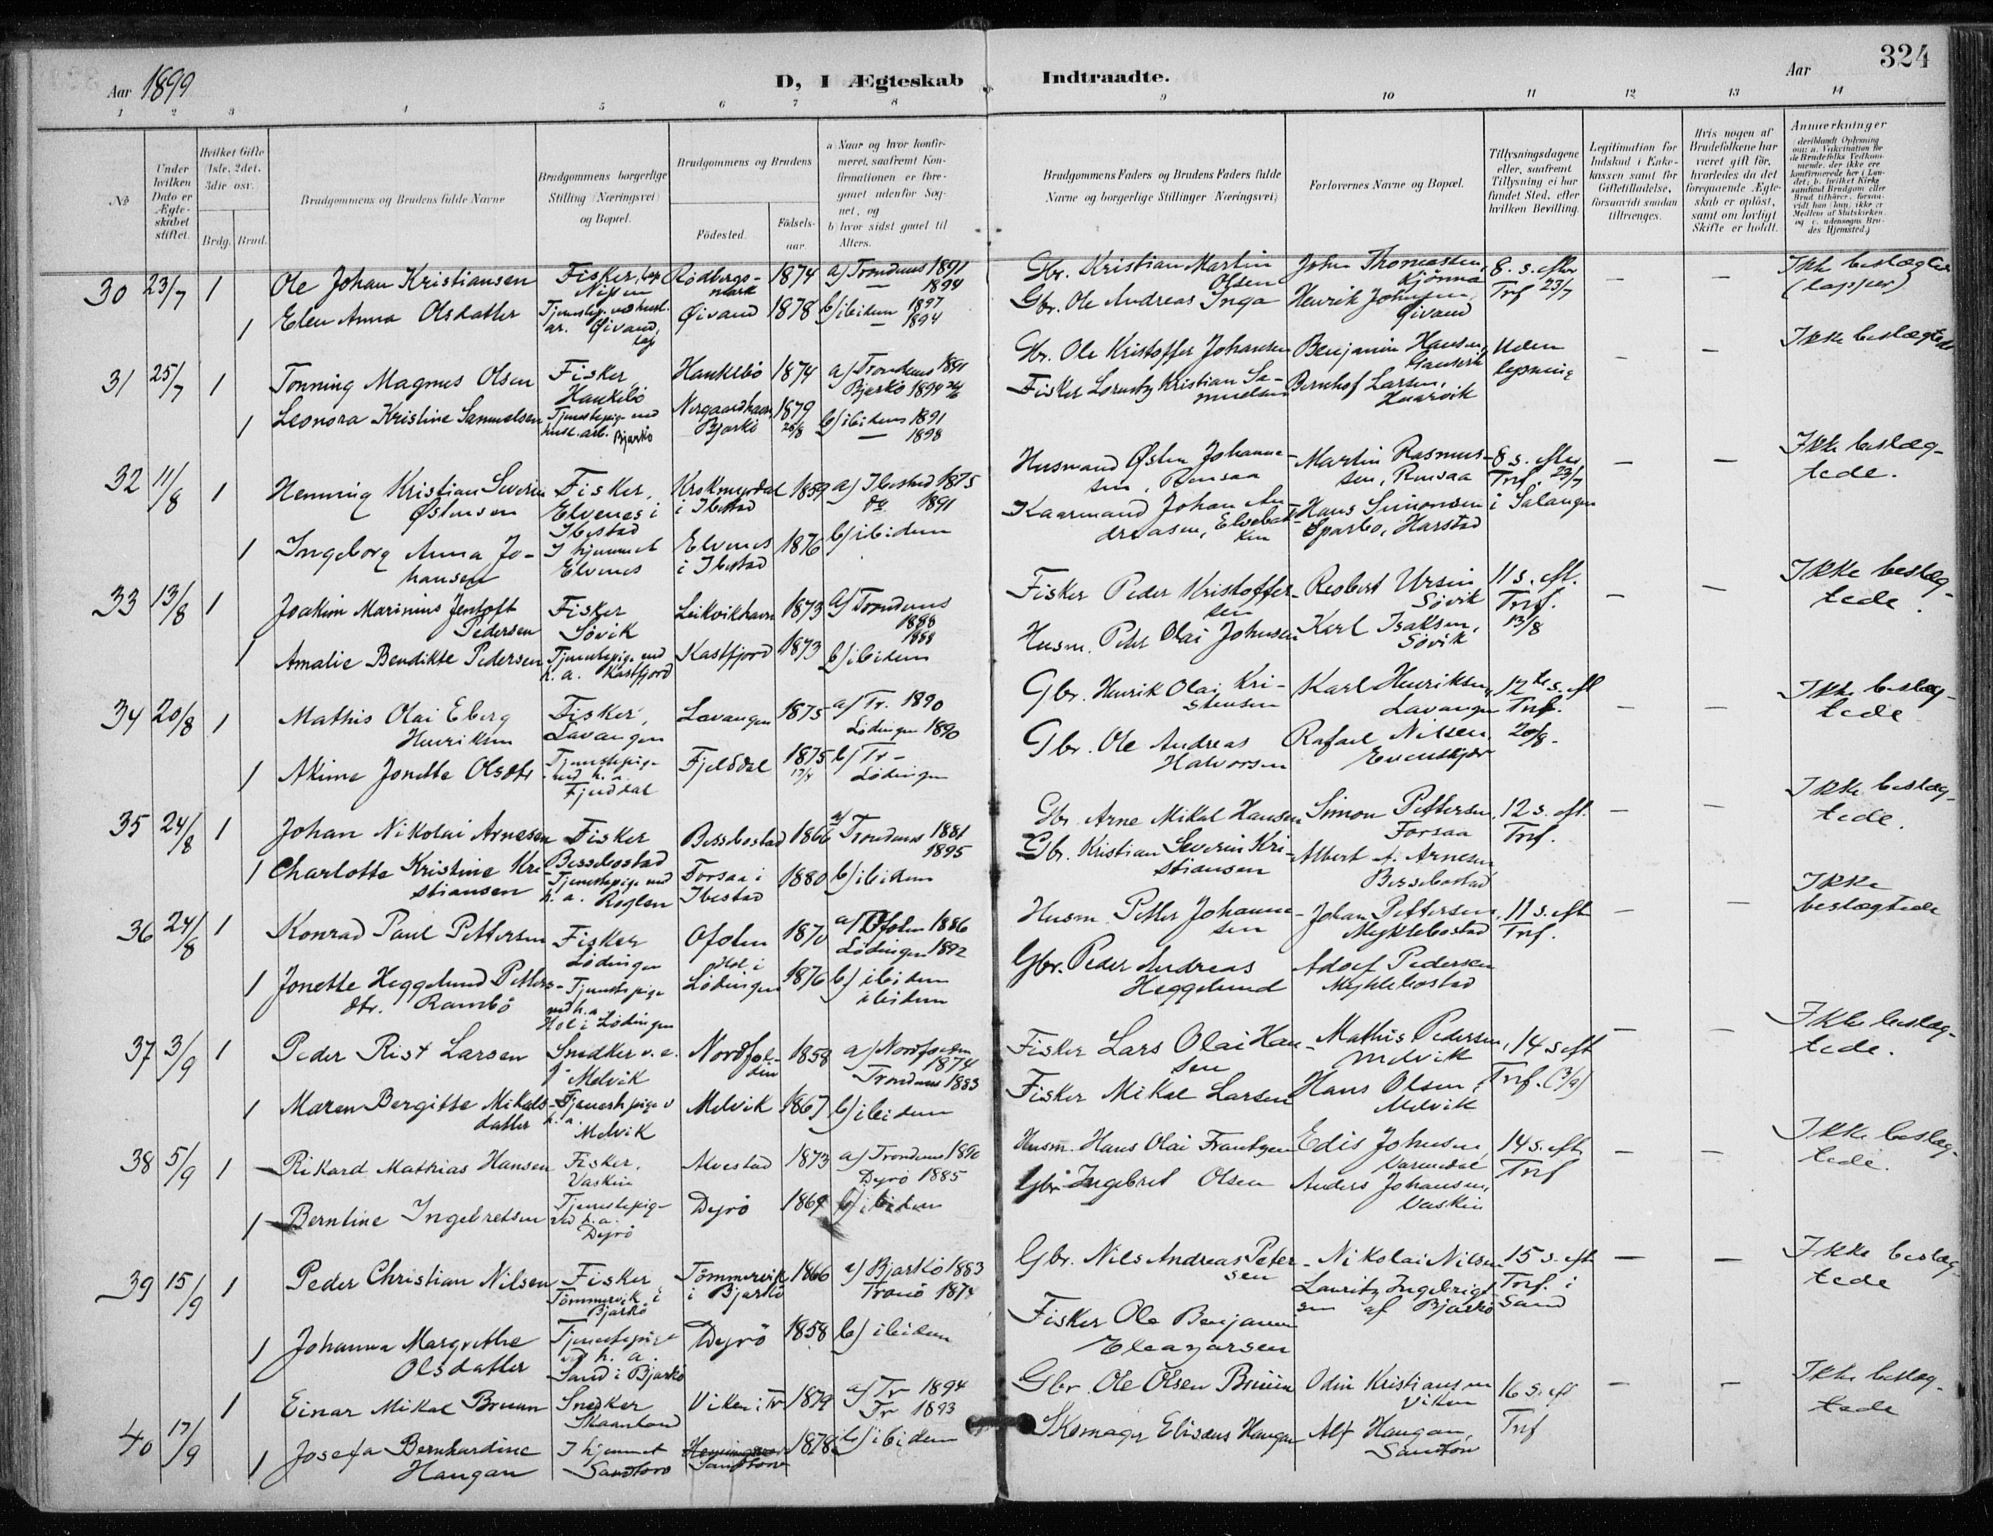 324
Aar 1899
D, I Ægteskab Indtraadte.
Aar
1 2 3 4 5 6 7 8 9 10 11 12 13 14
No
Under hvilken Dato er Ægteskabet stiftet.
Hvilket Gifte (1ste, 2det, 3die osv.
Brdg. Brud.
Brudgommens og Brudens fulde Navne
Brudgommens borgerlige Stilling (Næringsvei) og Bopæl.
Brudgommens og Brudens
Fødested.
Fødselsaar.
a) Naar og hvor konfirmeret, saafremt Konfirmationen er foregaaet udenfor Sognet, og
b) hvor sidst gaaet til Alters.
Brudgommens Faders og Brudens Faders fulde Navne og borgerlige Stillinger (Næringsvei)
Forlovernes Navne og Bopæl.
Tillysningsdagene eller, saafremt Tillysning ei har fundet Sted, efter hvilken Bevilling.
Legitimation for Indskud i Enkekassen samt for Giftetilladelse, forsaavidt saadan tiltrænges.
Hvis nogen af Brudefolkene har været gift før, hvorledes da det foregaaende Ægteskab er opløst, samt om lovligt Skifte er holdt.
Anmærkninger
30 23/7 1 Ole Johan Kristiansen Fisker, lap Rödbergsmark 1874 a) Trondenes 1891 – 1894 Gbr. Kristian Martin Olsen John Thomassen, Kjönna 8. s. efter Trnf 23/7 – – Ikke beslægtede (lapper)
1 Elen Anna Olsdatter Tjenestepige ved husl. ar. Öivand, lap Öivand 1878 b) ibidem 1897 – 1894 Gbr. Ole Andreas Inga Henrik Johnsen, Öivand
31 25/7 1 Tönning Magnus Olsen Fisker Hankebö 1874 a) Trondenes 1891 Bjarkö 1899 Gbr. Ole Kristoffer Johansen Benjamin Hansen, Uden lysning – – Ikke beslægtede
1 Leonora Kristine Samuelsen Tjenestepige ved husl. arb. Bjarkö Bjarkö 1879 b) ibidem 1891 – 1898 Fisker Lorentz Kristian Samuelsen Bernhof Larsen,
32 11/8 1 Henning Kristian Severin Östensen Fisker, Elvenes i Ibestad i Ibestad 1859 a) Ibestad 1875 do 1891 Husmand Östen Johannesen, Rensaa Martin Rasmussen, Rensaa 8 s. efter Trnf. 23/7 i Salangen – – Ikke beslægtede.
1 Ingeborg Anna Johansen I hjemmet Elvenes Elvenes i Ibestad 1876 b) ibidem Kaarmand Johan Andreasen, Hans Simonsen Sparbo, Harstad
33 13/8 1 Joakim Marinius Jentoft Pedersen Fisker Sövik Leikvikhavn 1873 a) Trondenes 1888 1888 Fisker Peder Kristoffersen Reobert Ursin Sövik 11 s. eft. Trnf. 13/8 – – Ikke beslægtede.
1 Amalie Bendikte Pedersen Tjenestepige ved h. a. Kastfjord Kastfjord 1873 b) ibidem Husm. Peter Olai Johnsen Karl Isaksen, Sövik
34 20/8 1 Mathis Olai Eberg Henriksen Fisker, Lavangen Lavangen 1875 a) Tr. 1890 Lödingen 1890 Gbr. Henrik Olai Kristensen Karl Henriksen, Lavangen 12te s. eft Trnf. 20/8. – – Ikke beslægtede
1 Akime Jonette Olsdtr Tjenestepige ved h. a. Fjeldal Fjelddal 1875 b) Tr – Lödingen Gbr. Ole Andreas Halvorsen Rafael Nilsen, Evenskjær
35 24/8 1 Johan Nikolai Arnesen Fisker Bessebostad Bessebostad 1866 a) Trondenes 1881 1895 Gbr. Arne Mikal Hansen Simon Pettersen, Forsaa 12 s. eft. Trnf. – – Ikke beslægtede.
1 Charlotte Kristine Kristiansen Tjenestepige ved h. a. Roglen Forsaa i Ibestad 1880 b) ibidem Gbr. Kristian Severin Kristiansen Albert A. Arnesen Bessebostad
36 24/8 1 Konrad Paul Pettersen Fisker Lödingen Ofoten 1870 a) Ofoten 1886 Lödingen 1892 Husm. Petter Johannesen Johan Pettersen, Myklebostad 11 s. eft Trnf. – – Ikke beslægtede
1 Jonette Heggelund Pettersdtr. Rambö Tjenestepige ved h. a. Hol i Lödingen Hol i Lödingen 1876 b) ibidem ibidem Gbr. Peder Andreas Heggelund Adolf Pedersen Myklebostad
37 3/9 1 Peder Rist Larsen Snedker Melvik Nordfolden 1858 a) Nordfolden 1874 Trondenes 1883 Fisker Lars Olai Hansen Mathis Pedersen, Melvik 14 s eft Trnf. (3/9) – – Ikke beslægtede.
1 Maren Bergitte Mikalsdatter Tjenestepige v h. a. Melvik Melvik 1867 b) ibidem Fisker Mikal Larsen Hans Olsen, Melvik
38 5/9 1 Rikard Mathias Hansen Fisker, Vaskin Alvestad 1873 a) Trondenes 1890 Dyrö 1885 Husm. Hans Olai Frantzen Edis Johnsen, 14 s. eft Trnf – – Ikke beslægtede.
1 Berntine Ingebretsen Tjenestepige ved h. a. Dyrö Dyrö 1869 b) ibidem Gbr. Ingebret Olsen Anders Johansen, Vaskin
39 15/9 1 Peder Christian Nilsen Fisker Tömmervik i Bjarkö Tömmervik i Bjarkö 1866 a) Bjarkö 1883 Tranö 1874 Gbr. Nils Andreas Petersen Nikolai Nilsen Lauritz Ingebrigtsen af Bjarkö 15 s. eft Trnf. i Sand – – Ikke beslægtede
1 Johanna Margrethe Olsdatter Tjenestepige ved h. a. Sand i Bjarkö Dyrö 1858 b) ibidem Fisker Ole Benjamin Eleazarsen
40 17/9 1 Einar Mikal Bruun Snedker Skaanland Viken i Tr 1879 a) Tr 1894 Tr 1893 Gbr. Ole Olsen Bruun Odin Kristiansen Viken 16 s. eft Trnf – – Ikke beslægtede
1 Josefa Bernhardine Haugan I hjemmet Sandtorv Sandtorv 1878 b) ibidem Skomager Elisæus Haugan Alf Haugan, Sandtorv